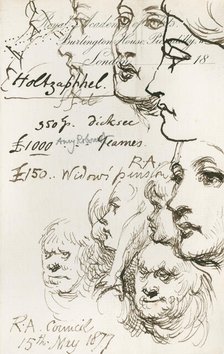 Royal Academy of Arts
Burlington House, Piccadilly, W.
London 18
Holtzapphel.
350 gs. dicksee
£1000 Eames.
R.A.
£150.. Widow's pension
R.A. Council
15th May 1877